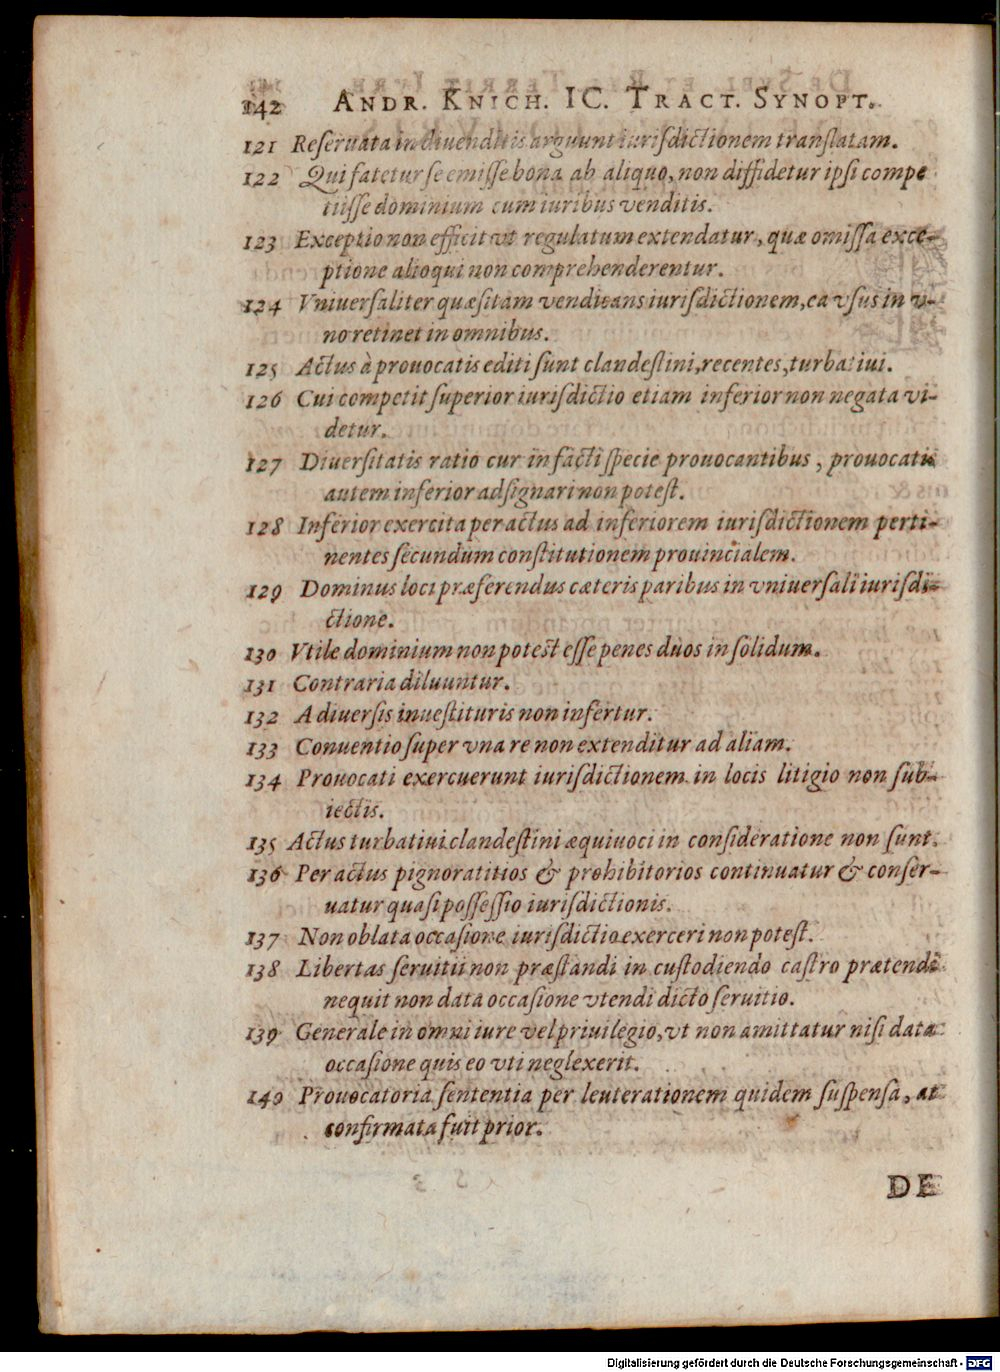 142 ANDR. KNICH. IC. TRACT. SYNOPT.
121 Reſeruata in diuenditis arguunt iurisdictionem translatam.
122 Qui fatetur ſe emiſſe bona ab aliquo, non diffidetur ipſi compe
tiiſſe dominium cum iuribus venditis.
123 Exceptio non efficit vt regulatum extendatur, quæ omiſſa exce-
ptione alioqui non comprehenderentur.
124 Vniuerſaliter quæſitam vendicans iurisdictionem, ea vſus in v-
no retinet in omnibus.
125 Actus à prouocatis editi ſunt clandeſtini, recentes, turbatiui.
126 Cui competit ſuperior iurisdictio etiam inferior non negata vi-
detur.
127 Diuerſitatis ratio cur in facti ſpecie prouocantibus, prouocatis
autem inferior adſignari non poteſt.
128 Inferior exercita per actus ad inferiorem iurisdictionem perti-
nentes ſecundum conſtitutionem prouincialem.
129 Dominus loci præferendus cæteris paribus in vniuerſali iurisdi-
ctione.
130 Vtile dominium non poteſt eſſe penes duos in ſolidum.
131 Contraria diluuntur.
132 A diuerſis inueſtituris non infertur.
133 Conuentio ſuper vna re non extenditur ad aliam.
134 Prouocati exercuerunt iurisdictionem in locis litigio non ſub-
iectis.
135 Actus turbatiui clandeſtini æquiuoci in conſideratione non ſunt.
136 Per actus pignoratitios & prohibitorios continuatur & conſer-
uatur quaſi poſſeſſio iurisdictionis.
137 Non oblata occaſione iurisdictio exerceri non poteſt.
138 Libertas ſeruitii non præſtandi in cuſtodiendo caſtro prætendi
nequit non data occaſione vtendi dicto ſeruitio.
139 Generale in omni iure vel priuilegio, vt non amittatur niſi data
occaſione quis eo vti neglexerit.
140 Prouocatoria ſententia per leuterationem quidem ſuſpenſa, at
confirmata fuit prior.
DE
Digitalisierung gefördert durch die Deutsche Forschungsgemeinschaft - DFG